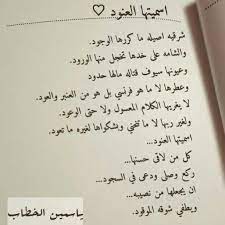 اسميتها العنود ♡
شرقيه اصيله ما كررها الوجود.
والشامه على خدها تخجل منها الورود.
وعيونها سيوف قتاله مالها حدود
وعطرها لا ما هو فرنسي بل هو من العنبر والعود.
لا يغريها الكلام المعسول ولا حتى الوعود.
ولغير ربها لا ما تنحني وبشكواها لغيره ما تعود.
اسميتها العنود...
كل من لاقى حسنها...
ركع وصلى ودعى في السجود...
ان يجعلها من نصيبه...
ويطفي شوقه الموقود.
ياسمين الخطاب